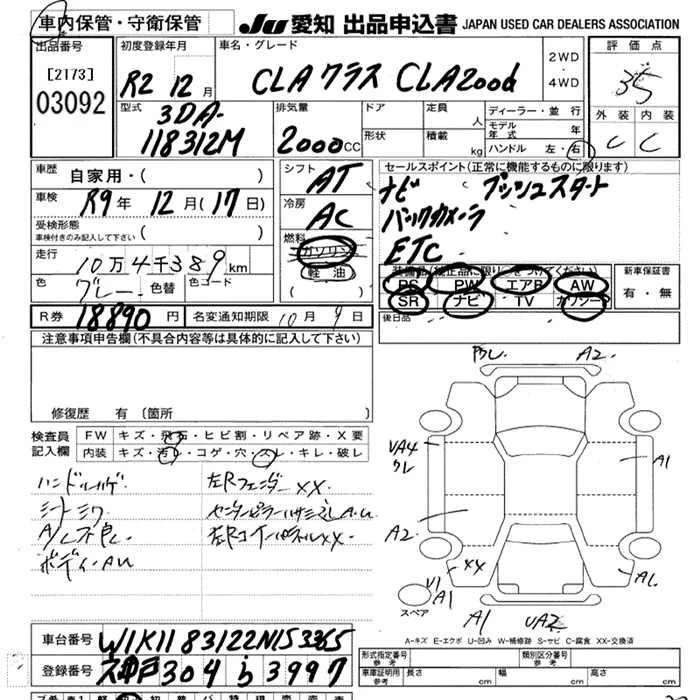 車内保管・守衛保管
JU 愛知 出品申込書 JAPAN USED CAR DEALERS ASSOCIATION
出品番号
[2173]
03092
初度登録年月
R2 12月
車名・グレード
CLA クラス CLA200d
2WD
4WD
評価点
3.5
外装 内装
C C
型式
3DA-
118312M
排気量
2000CC
ドア
形状
定員 人
積載 kg
ディーラー・並行
モデル年式 年
ハンドル 左・右
車歴
自家用・( )
車検
R9年 12月(17日)
受検形態
車検付きのみ記入して下さい ( )
走行
10万4千389km
色 グレー 色替 色コード
シフト
AT
冷房
AC
燃料
ガソリン
軽油
( )
セールスポイント(正常に機能するものに限ります)
ナビ プッシュスタート
バックカメラ
ETC
装備品(純正品に限り○をつけてください)
PS PW エアB AW
SR ナビ TV カワシート
新車保証書
有・無
後日品
R券 18890円 名変通知期限 10月9日
注意事項申告欄(不具合内容等は具体的に記入して下さい)
修復歴 有 (箇所
検査員
記入欄
FW キズ・飛石・ヒビ割・リペア跡・X要
内装 キズ・汚レ・コゲ・穴・スレ・キレ・破レ
シートシワ
ボディAU
左Rフェンダー XX
A2
A1
A2
XX
A1
A1
UA2
スペア
A-キズ E-エクボ U-凹み W-補修跡 S-サビ C-腐食 XX-交換済
車台番号 W1K1183122N153365
登録番号 神戸 304 ら 3997
形式指定番号
参考
類別区分番号
参考
車庫証明用
参考
長さ cm
幅 cm
高さ cm